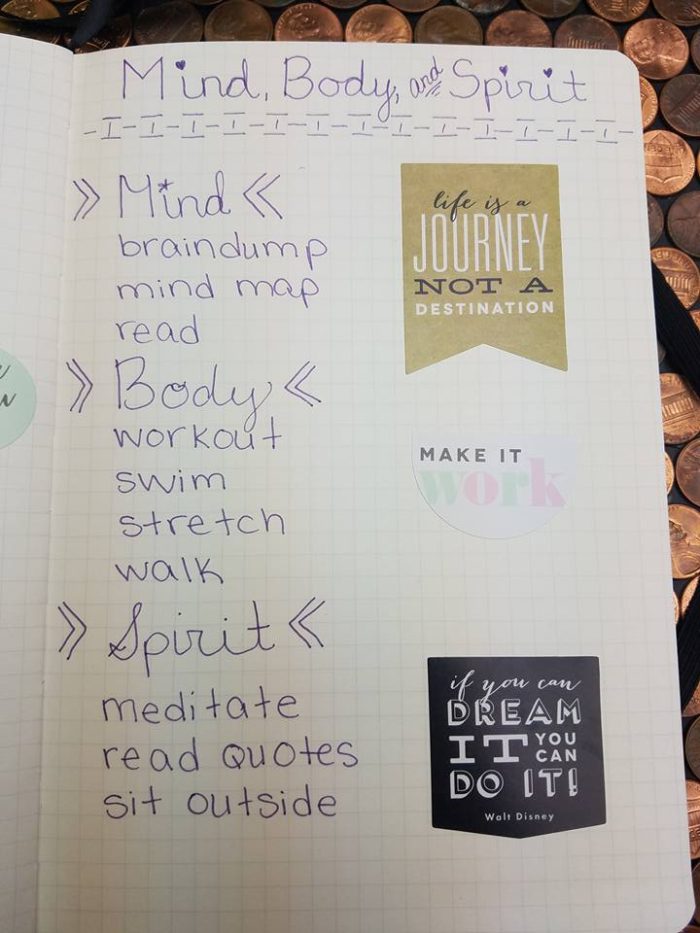 Mind, Body, and Spirit
» Mind «
braindump
mind map
read
» Body «
workout
swim
stretch
walk
» Spirit «
meditate
read quotes
sit outside
life is a
JOURNEY
NOT A
DESTINATION
MAKE IT
work
if you can
DREAM
IT YOU CAN
DO IT!
Walt Disney